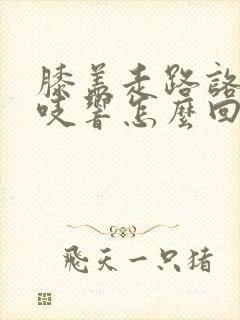 膝盖走路咯
吱響怎麼回
飛天一只猪